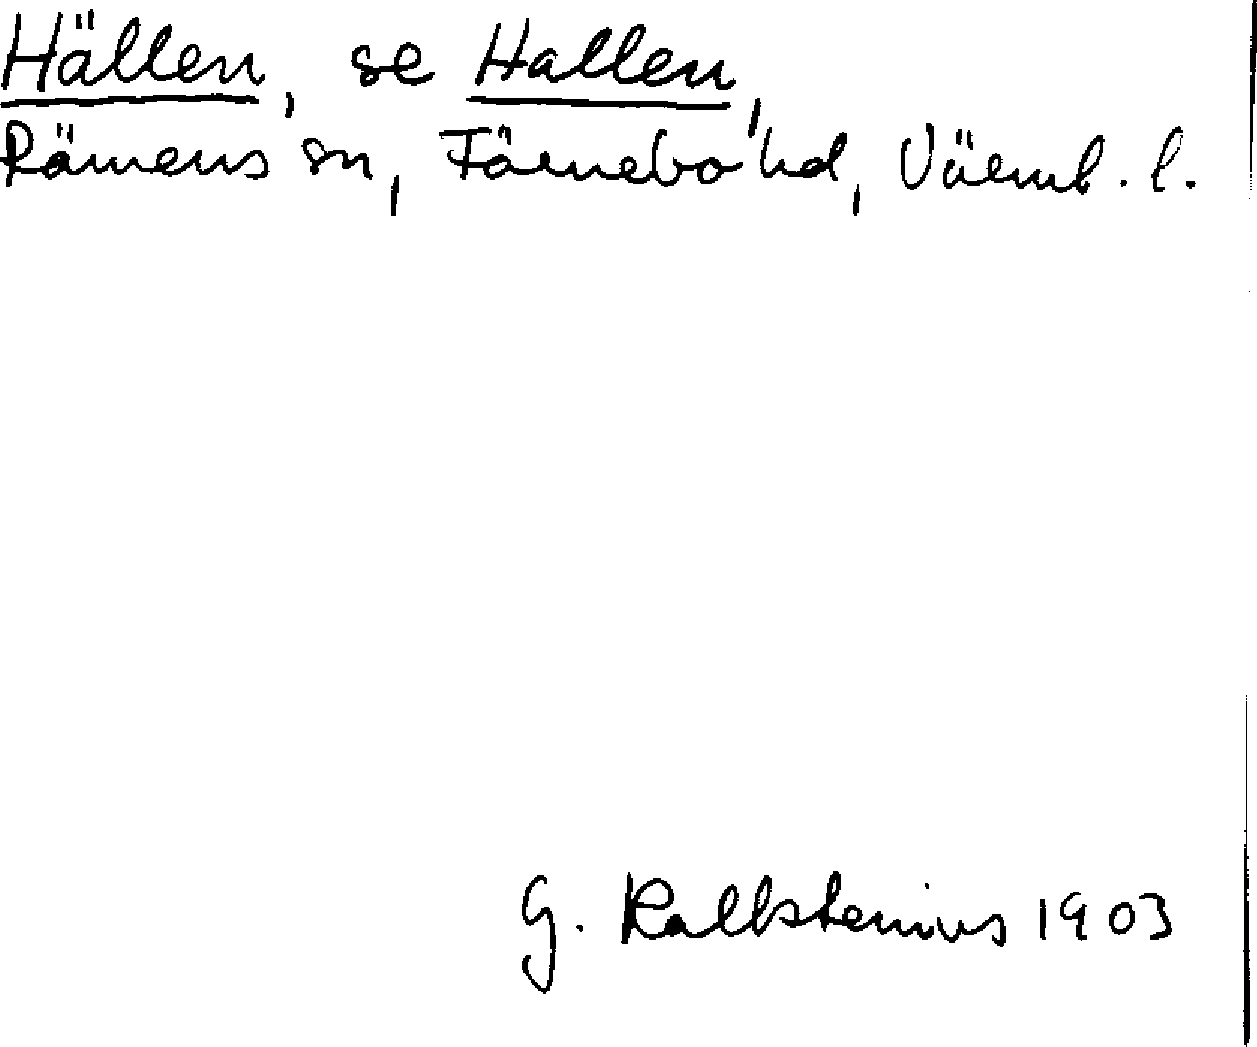 Hällen, se Hallen,
Rämens sn, Färnebo hd, Värml. l.
G. Kallstenius 1903